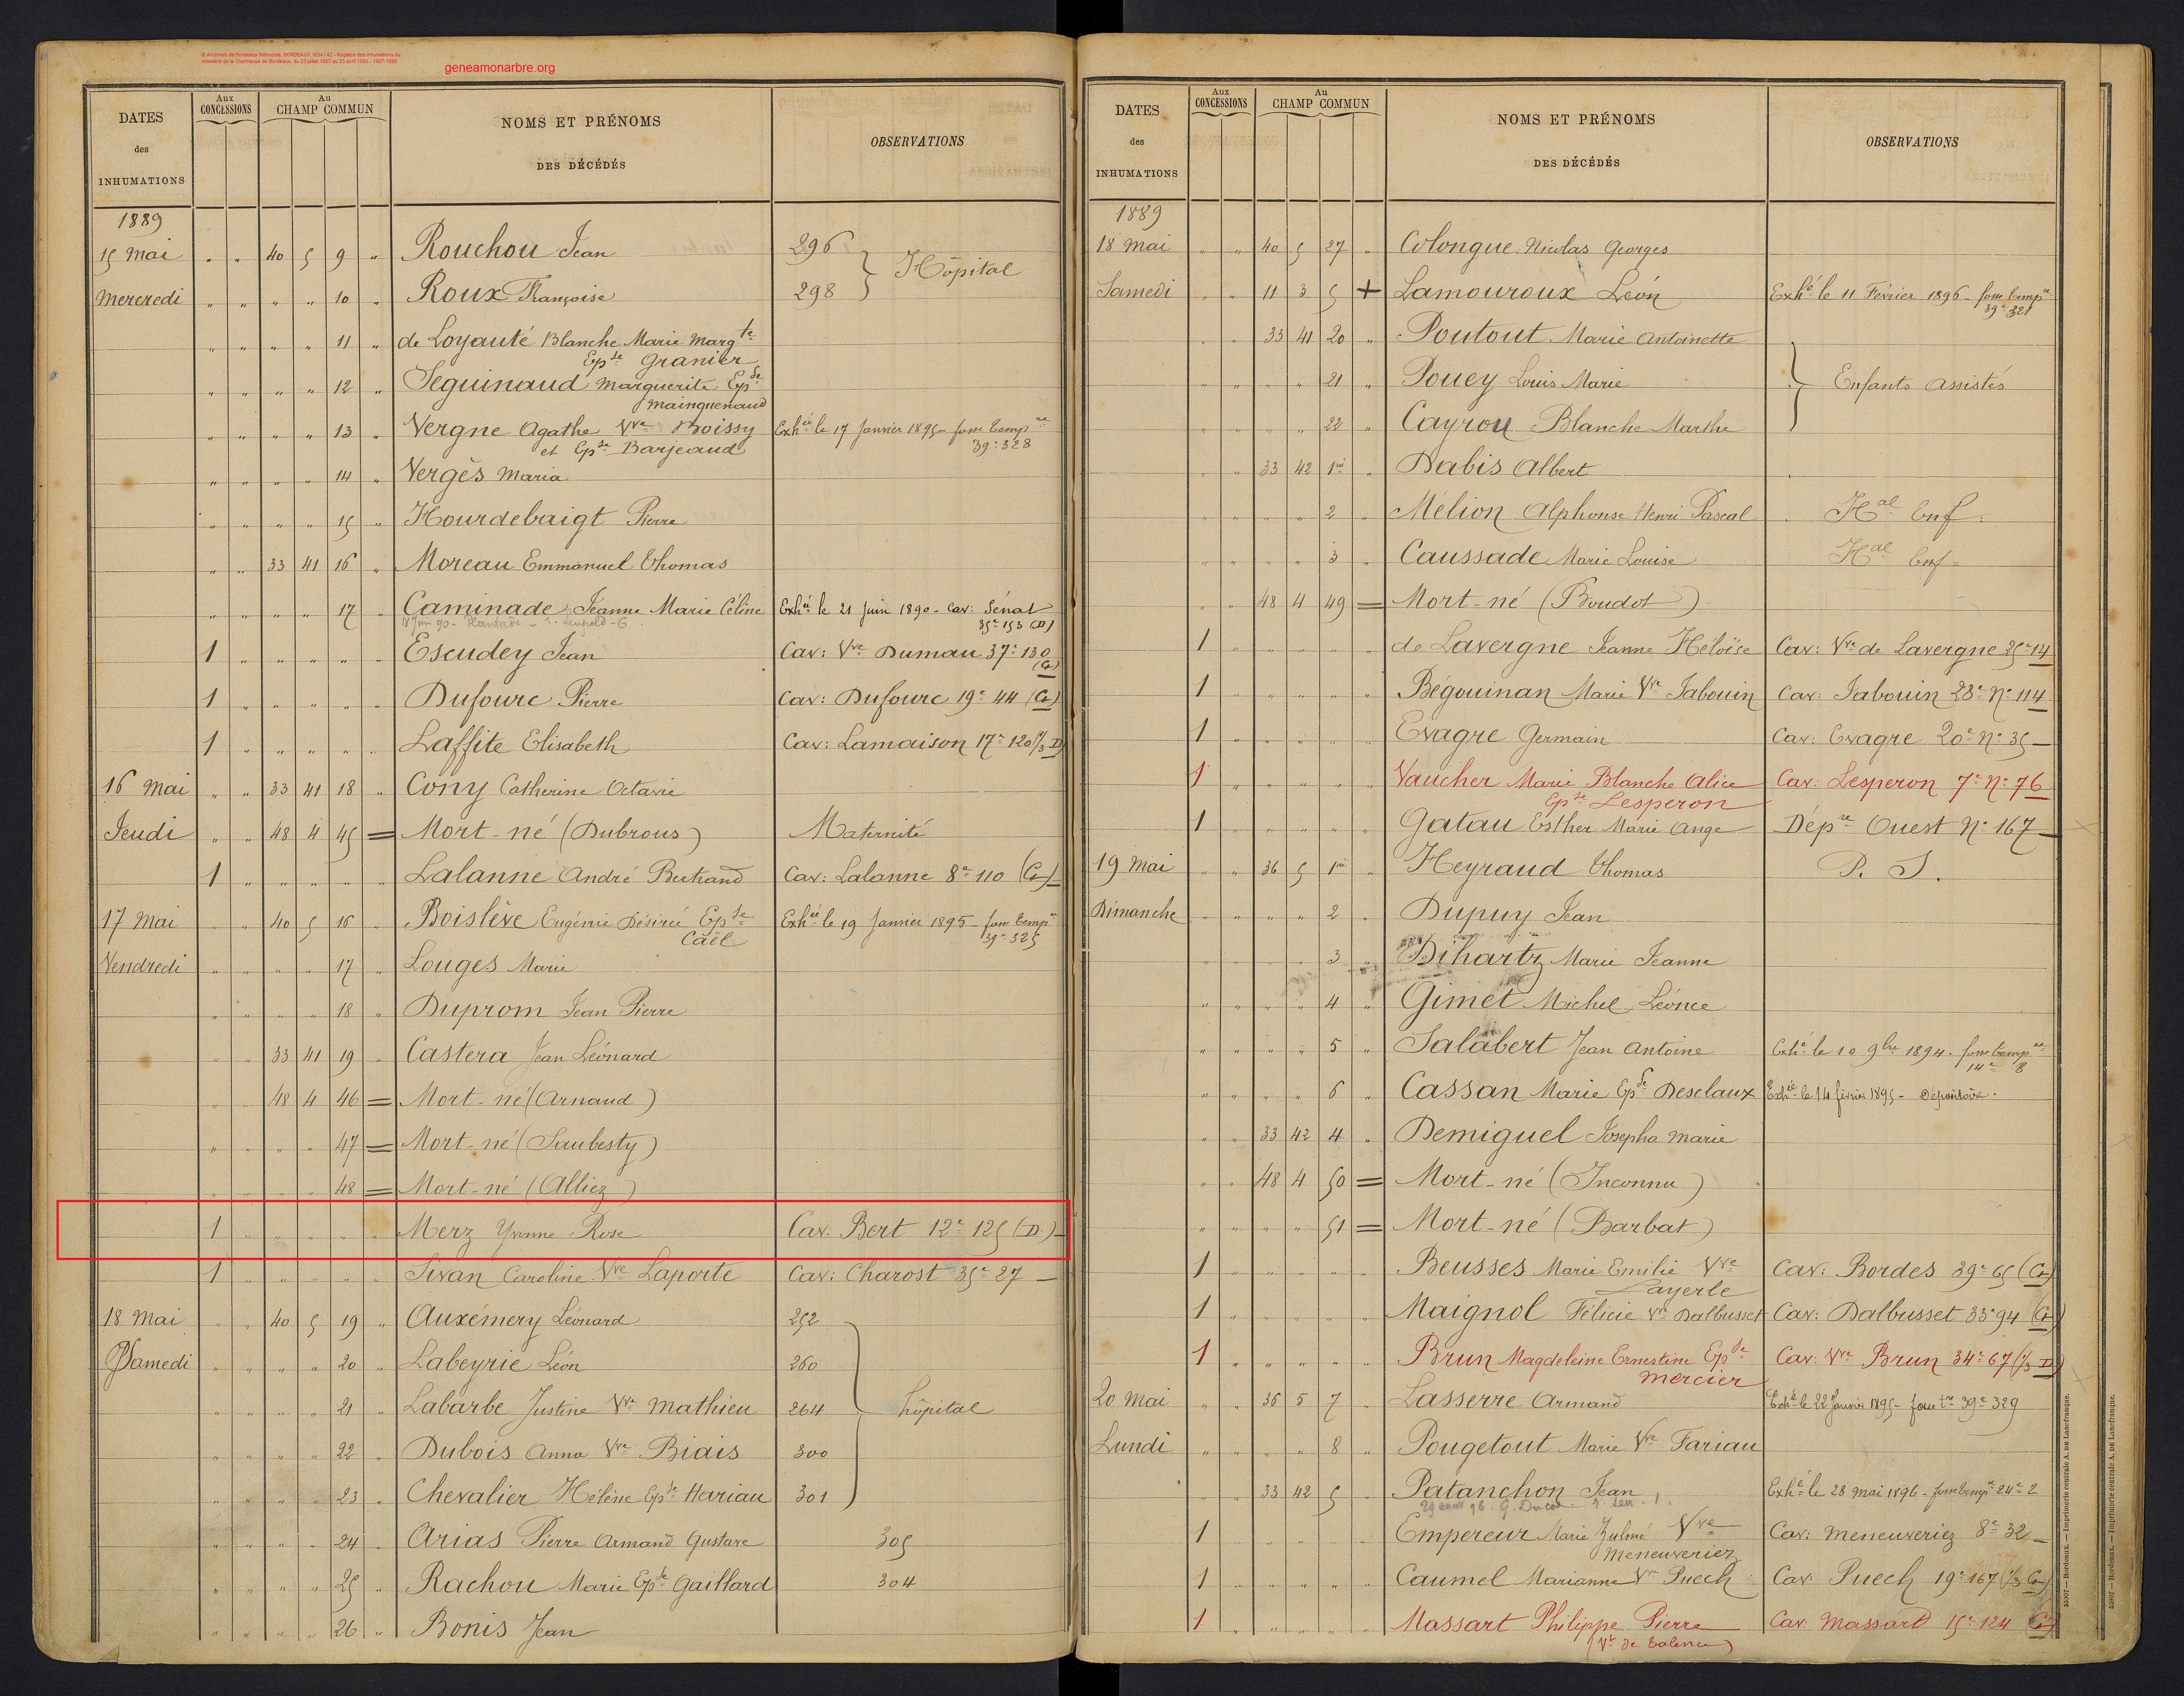 © Archives de Bordeaux Métropole, BORDEAUX 1634 I 42 - Registre des inhumations du
cimetière de la Chartreuse de Bordeaux, du 23 juillet 1887 au 23 avril 1890 - 1887-1890
geneamonarbre.org
DATES des INHUMATIONS
Aux CONCESSIONS
Au CHAMP COMMUN
NOMS ET PRÉNOMS DES DÉCÉDÉS
OBSERVATIONS
1889
15 Mai " " 40 5 9 " Rouchou Jean 296
Hôpital
Mercredi " " " " 10 " Roux Françoise 298
" " " " 11 " de Loyauté Blanche Marie Marg.te
Ep.se Granier
" " " " 12 " Seguinaud Marguerite Ep.se
Mainguenaud
" " " " 13 " Vergne Agathe Vve Boissy Exh.ée le 17 Janvier 1895 - fosse temp.re
et Ep.se Barjeaud 39e 328
" " " " 14 " Vergès Maria
" " " " 15 " Hourdebaigt Pierre
" " 33 41 16 " Moreau Emmanuel Thomas
" " " " 17 " Caminade Jeanne Marie Céline Exh.ée le 21 Juin 1890 - Cav: Sénat
35e 153 (D)
1 " " " " " Escudey Jean Cav: Vve Dumau 37e 130
(G)
1 " " " " " Dufourc Pierre Cav: Dufourc 19e 44 (G)
1 " " " " " Laffite Elisabeth Cav: Lamaison 17e 120 1/3 D
16 Mai " " 33 41 18 " Cony Catherine Octavie
Jeudi " " 48 4 45 = Mort-né (Dubrous) Maternité
1 " " " " " Lalanne André Bertrand Cav: Lalanne 8e 110 (G)
17 Mai " " 40 5 16 " Boislève Eugénie Désirée Ep.se Exh.ée le 19 Janvier 1895 - fosse temp.re
Caël 39e 325
Vendredi " " " " 17 " Louges Marie
" " " " 18 " Duprom Jean Pierre
" " 33 41 19 " Castera Jean Léonard
" " 48 4 46 = Mort-né (Arnaud)
" " " " 47 = Mort-né (Saubesty)
" " " " 48 = Mort-né (Alliez)
1 " " " " " Merz Yvonne Rose Cav. Bert 12e 125 (D.)
1 " " " " " Sivan Caroline Vve Laporte Cav: Charost 35e 27
18 Mai " " 40 5 19 " Auxémery Léonard 252
Samedi " " " " 20 " Labeyrie Léon 260
" " " " 21 " Labarbe Justine Vve Mathieu 264 hôpital
" " " " 22 " Dubois Anna Vve Biais 300
" " " " 23 " Chevalier Hélène Ep.se Hariau 301
" " " " 24 " Arias Pierre Armand Gustave 305
" " " " 25 " Rachou Marie Ep.se Gaillard 304
" " " " 26 " Bonis Jean
DATES des INHUMATIONS
Aux CONCESSIONS
Au CHAMP COMMUN
NOMS ET PRÉNOMS DES DÉCÉDÉS
OBSERVATIONS
1889
18 Mai " " 40 5 27 " Colongue Nicolas Georges
Samedi " " 11 3 5 + Lamouroux Léon Exh.é le 11 Février 1896 - fosse temp.re
39e 321
" " 33 41 20 " Poutout Marie Antoinette
" " " " 21 " Pouey Louis Marie Enfants Assistés
" " " " 22 " Cayrou Blanche Marthe
" " 33 42 1er " Dabis Albert
" " " " 2 " Mélion Alphonse Henri Pascal Hal Enf.
" " " " 3 " Caussade Marie Louise Hal Enf.
" " 48 4 49 = Mort-né (Boudot)
1 " " " " " de Lavergne Jeanne Héloïse Cav: Vve de Lavergne 25e 14
1 " " " " " Bégouinan Marie Vve Jabouin Cav: Jabouin 28e No 114
1 " " " " " Evagre Germain Cav: Evagre 20e No 35
1 " " " " " Vaucher Marie Blanche Alice Cav: Lesperon 7e No 76
Ep.se Lesperon
1 " " " " " Gatau Esther Marie Ange Dép.re Ouest No 167
19 Mai " " 36 5 1er " Heyraud Thomas P. S.
Dimanche " " " " 2 " Dupuy Jean
" " " " 3 " Dihartz Marie Jeanne
" " " " 4 " Gimet Michel Léonce
" " " " 5 " Salabert Jean Antoine Exh.é le 10 9bre 1894. fosse temp.re
14e 8
" " " " 6 " Cassan Marie Ep.se Desclaux Exh.ée le 14 février 1895 - Dépositoire.
" " 33 42 4 " Demiguel Josepha Marie
" " 48 4 50 = Mort-né (Inconnu)
" " " " 51 = Mort-né (Barbat)
1 " " " " " Beusses Marie Emilie Vve Cav: Bordes 39e 65 (G)
Layerle
1 " " " " " Maignol Félicie Vve Dalbusset Cav: Dalbusset 33e 94 (G)
1 " " " " " Brun Magdeleine Ernestine Ep.se Cav: Vve Brun 34e 67 (1/3 D)
Mercier
20 Mai " " 36 5 7 " Lasserre Armand Exh.é le 22 Janvier 1895 - fosse t.re 39e 329
Lundi " " " " 8 " Pougetout Marie Vve Fariau
" " 33 42 5 " Patanchon Jean Exh.é le 28 Mai 1896 - fosse temp.re 24e 2
1 " " " " " Empereur Marie Zulmé Vve Cav: Meneuveriez 8e 32
Meneuveriez
1 " " " " " Caumel Marianne Vve Puech Cav. Puech 19e 167 (1/3 G)
1 " " " " " Massart Philippe Pierre Cav. Massard 15e 124 G
(Vt de Talence)
55907 — Bordeaux. — Imprimerie centrale A. DE Lanefranque.
55907 — Bordeaux. — Imprimerie centrale A. DE Lanefranque.